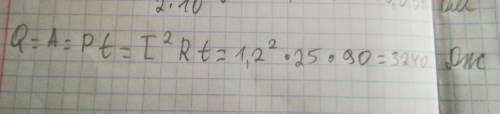 2.10
Q = A = Pt = I²Rt = 1,2² • 25 • 90 = 3240 Дж